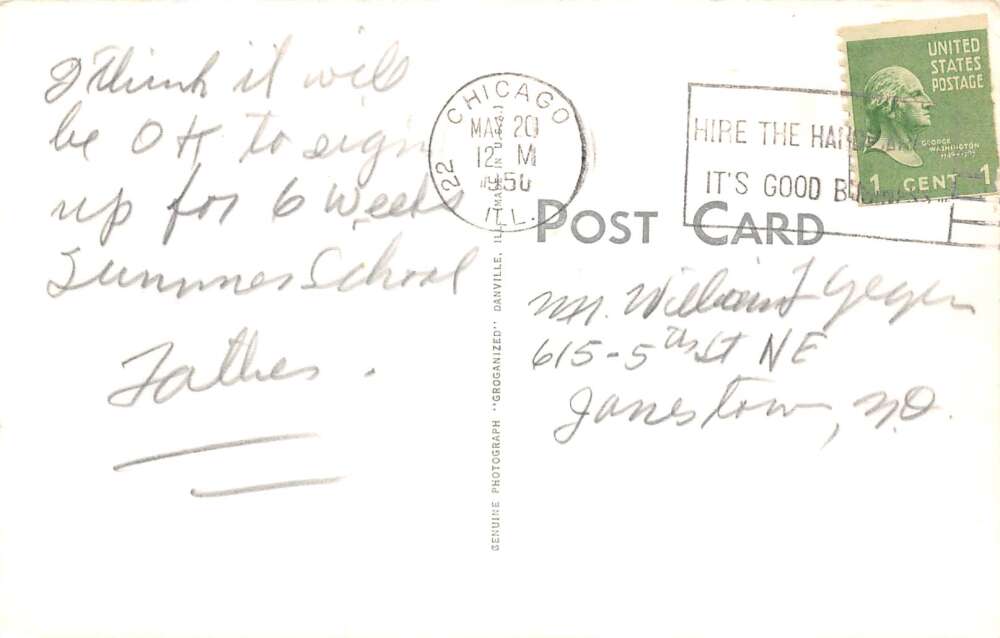 I think it will
be OK to sign
up for 6 weeks
Summer School
Father.
CHICAGO
20
12 M
1950
22
ILL.
HIRE THE
IT'S GOOD
UNITED
STATES
POSTAGE
GEORGE
WASHINGTON
1 CENT 1
POST CARD
Mr. William
615-5th St NE
Jamestown, N.D.
GENUINE PHOTOGRAPH "GROGANIZED" DANVILLE, ILL. MADE IN U.S.A.